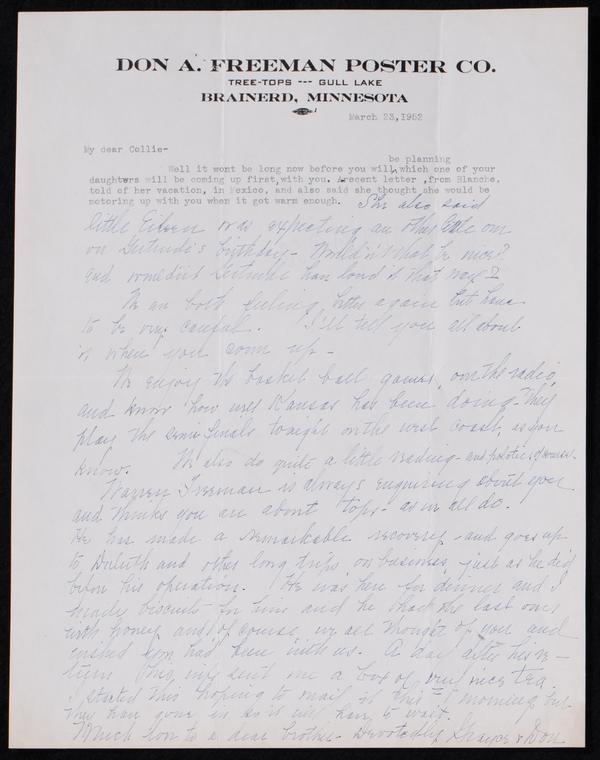 DON A. FREEMAN POSTER CO.
TREE-TOPS --- GULL LAKE
BRAINERD, MINNESOTA
March 23, 1952
My dear Collie-
be planning
Well it wont be long now before you will, which one of your
daughters will be coming up first, with you. Arecent letter ,from Blanche,
told of her vacation, in Mexico, and also said she thought she would be
motoring up with you when it get warm enough. She also said
little Eileen was expecting an other little one
on Gertrude's birthday - Wouldn't that be nice?
and wouldn't Gertrude have loved it that way?
We are both feeling better again but have
to be very careful. I'll tell you all about
it when you come up -
We enjoy the basket ball games, on the radio,
and know how well Kansas has been doing - They
play the semi finals tonight on the west coast, as you
know. We also do quite a little reading - and politics, of course.
Warren Freeman is always enquiring about you
and thinks you are about "tops" - as we all do.
He has made a remarkable recovery - and goes up
to Duluth and other long trips, on business, just as he did
before his operation. He was here for dinner and I
made biscuits for him and he had the last ones
with honey and of course, we all thought of you and
wished you had been with us. A day after his re-
turn his wife sent me a box of very nice tea.
I started this hoping to mail it this morning but
they have gone in so it will have to wait.
Much love to a dear brother - Devotedly, Grayce & Don